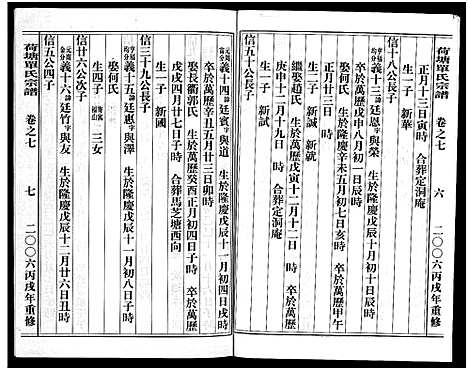 荷塘單氏宗譜 卷之七 六 二〇〇六丙戌年重修
正月十三日寅時 合葬定洞庵
生一子 新華
信十八公長子
義十三 諱廷恩 字與榮 生於隆慶戊辰十月初十日辰時
卒於萬歷戊寅八月初一日辰時
娶何氏 生於隆慶辛未五月初七日亥時 卒於萬歷甲午
正月廿三日
生二子 新誠 新就
繼娶趙氏 生於萬歷戊寅十二月十二日 卒於萬歷
庚申十二月十九日時 合葬定洞庵
生一子 新試
信五十公長子
義十四 諱廷賓 字與道 生於隆慶戊辰十一月初四日戌時
卒於萬歷辛丑五月廿三日卯時
娶長衢郭氏 生於萬歷癸酉正月初四日子時 卒於萬歷
戊戌四月廿七日子時 合葬馬芝塘西向
生一子 新國
信三十九公長子
義十五 諱廷惠 字與澤 生於隆慶戊辰十一月初八日子時
娶何氏
生四子 三女
信廿六公次子
義十六 諱廷竹 字與友 生於隆慶戊辰十二月廿六日丑時
信五公四子
荷塘單氏宗譜 卷之七 七 二〇〇六丙戌年重修